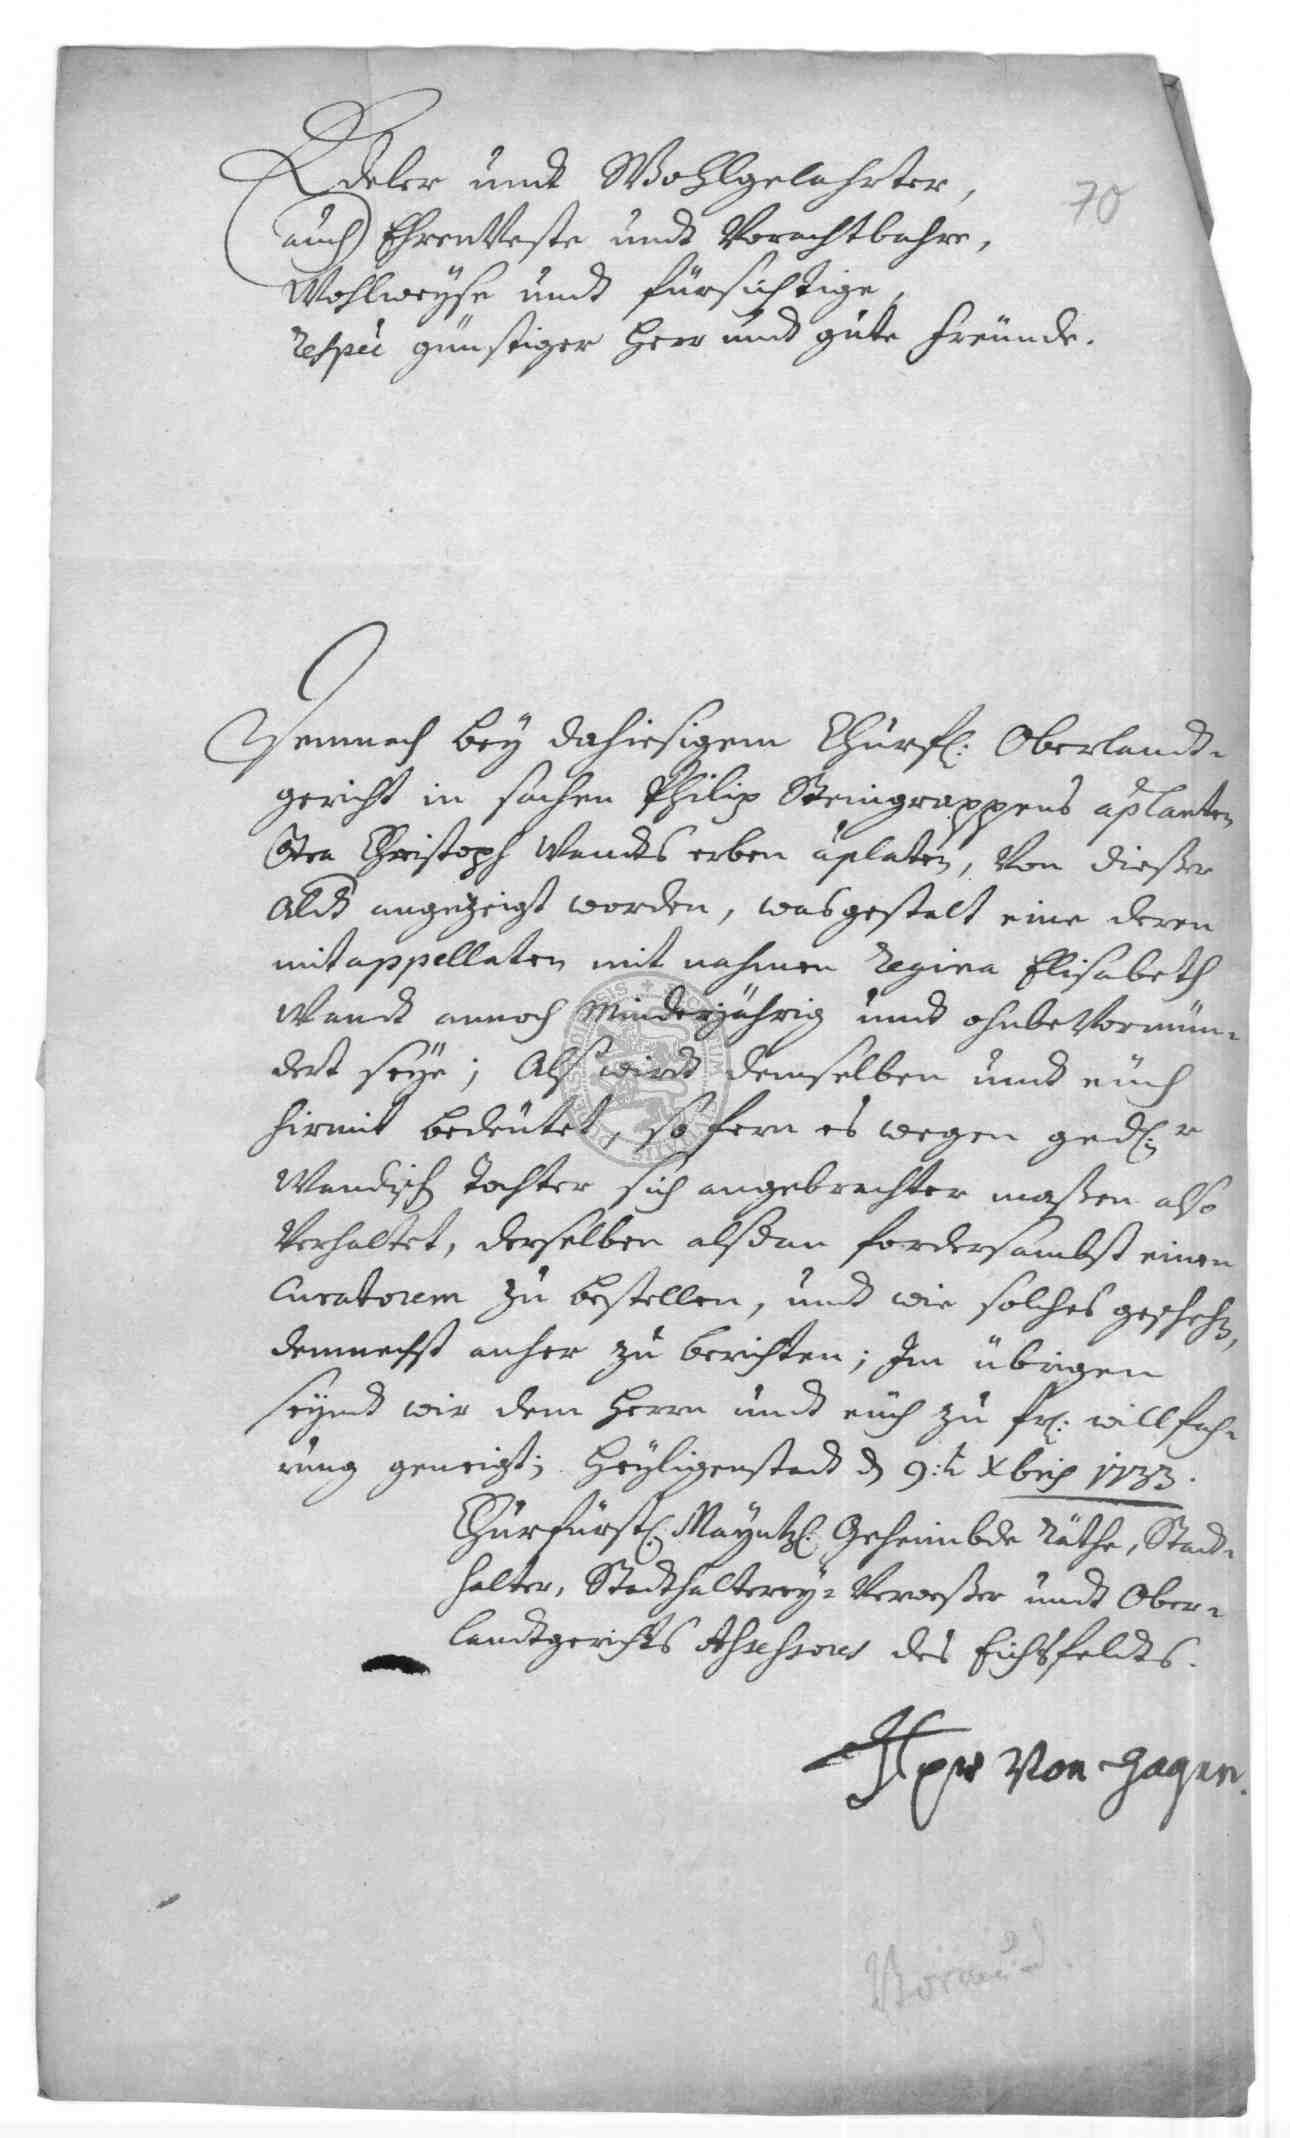 Edeler undt Wohlgelahrter,
auch EhrenVeste undt Vorachtbahre,
Wohlweyse undt fürsichtige,
respée günstiger Herr undt gute Freünde.
70
Demnach bey dahiesigem Churfl: Oberlandt=
gericht in sachen Philip Steingrappens aplanten
Ctra Christoph Wandts erben aplaten, Von dießer
angezeigt worden, wasgestalt eine deren
mitappellaten mit nahmen Regina Elisabeth
Wandt annoch Minderjährig undt ohnbeVormün=
det seye; Alß wirdt demselben undt euch
hirmit bedeutet, so fern es wegen gedl:r
Wandisch Tochter sich angebrachter maßen also
Verhaltet, derselben alßdan fordersambst einen
Curatorem zu bestellen, undt wie solches geschehen,
demnechst anher zu berichten; Im übrigen
seyndt wir dem Herrn undt euch zu frl: willfah=
rung geneigt; Heyligenstadt d 9:t Xbris 1733.
Churfürstl: Mayntzl: Geheimbde Räthe, Stadt=
halter, Stadthalterey=Verweßer undt Ober=
landtgerichts Assessores des Eichsfeldts.
Von Hagen.
Vormund.